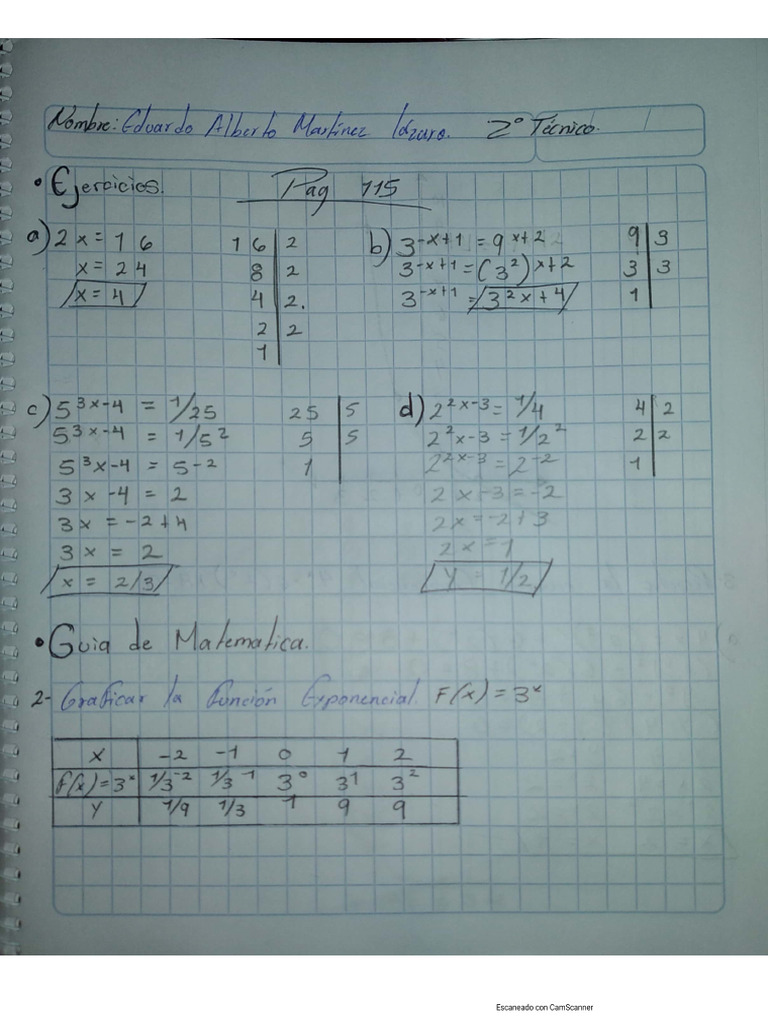 Nombre: Eduardo Alberto Martínez lázaro. 2° Técnico.
• Ejercicios. Pag 115
a) 2x = 16
x = 24
x = 4
16 | 2
8 | 2
4 | 2.
2 | 2
1
b) 3^-x+1 = 9^x+2
3^-x+1 = (3^2)^x+2
3^-x+1 = 3^2x+4
9 | 3
3 | 3
1
c) 5^3x-4 = 1/25
5^3x-4 = 1/5^2
5^3x-4 = 5-2
3x-4 = 2
3x = -2+4
3x = 2
x = 2/3
25 | 5
5 | 5
1
d) 2^2x-3 = 1/4
2^2x-3 = 1/2^2
2^2x-3 = 2^-2
2x-3 = -2
2x = -2+3
2x = 1
Y = 1/2
4 | 2
2 | 2
1
• Guia de Matematica.
2- Graficar la Función Exponencial. F(x) = 3^x
X -2 -1 0 1 2
F(x) = 3^x 1/3^-2 1/3^-1 3^0 3^1 3^2
Y 1/9 1/3 1 9 9
Escaneado con CamScanner